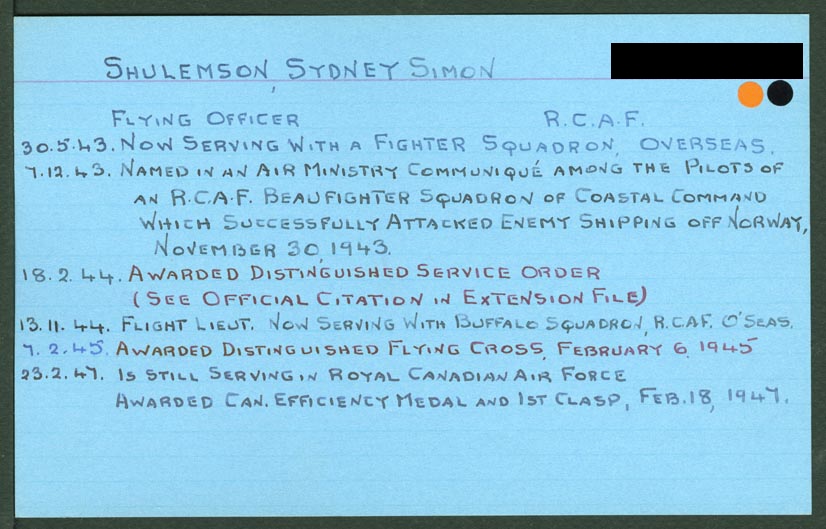 SHULEMSON, SYDNEY SIMON
FLYING OFFICER R.C.A.F.
30.5.43. NOW SERVING WITH A FIGHTER SQUADRON, OVERSEAS.
7.12.43. NAMED IN AN AIR MINISTRY COMMUNIQUÉ AMONG THE PILOTS OF
AN R.C.A.F. BEAUFIGHTER SQUADRON OF COASTAL COMMAND
WHICH SUCCESSFULLY ATTACKED ENEMY SHIPPING OFF NORWAY,
NOVEMBER 30, 1943.
18.2.44. AWARDED DISTINGUISHED SERVICE ORDER
(SEE OFFICIAL CITATION IN EXTENSION FILE)
13.11.44. FLIGHT LIEUT. NOW SERVING WITH BUFFALO SQUADRON, R.C.A.F. O'SEAS.
7.2.45. AWARDED DISTINGUISHED FLYING CROSS, FEBRUARY 6, 1945
23.2.47. IS STILL SERVING IN ROYAL CANADIAN AIR FORCE
AWARDED CAN. EFFICIENCY MEDAL AND 1ST CLASP, FEB. 18, 1947.